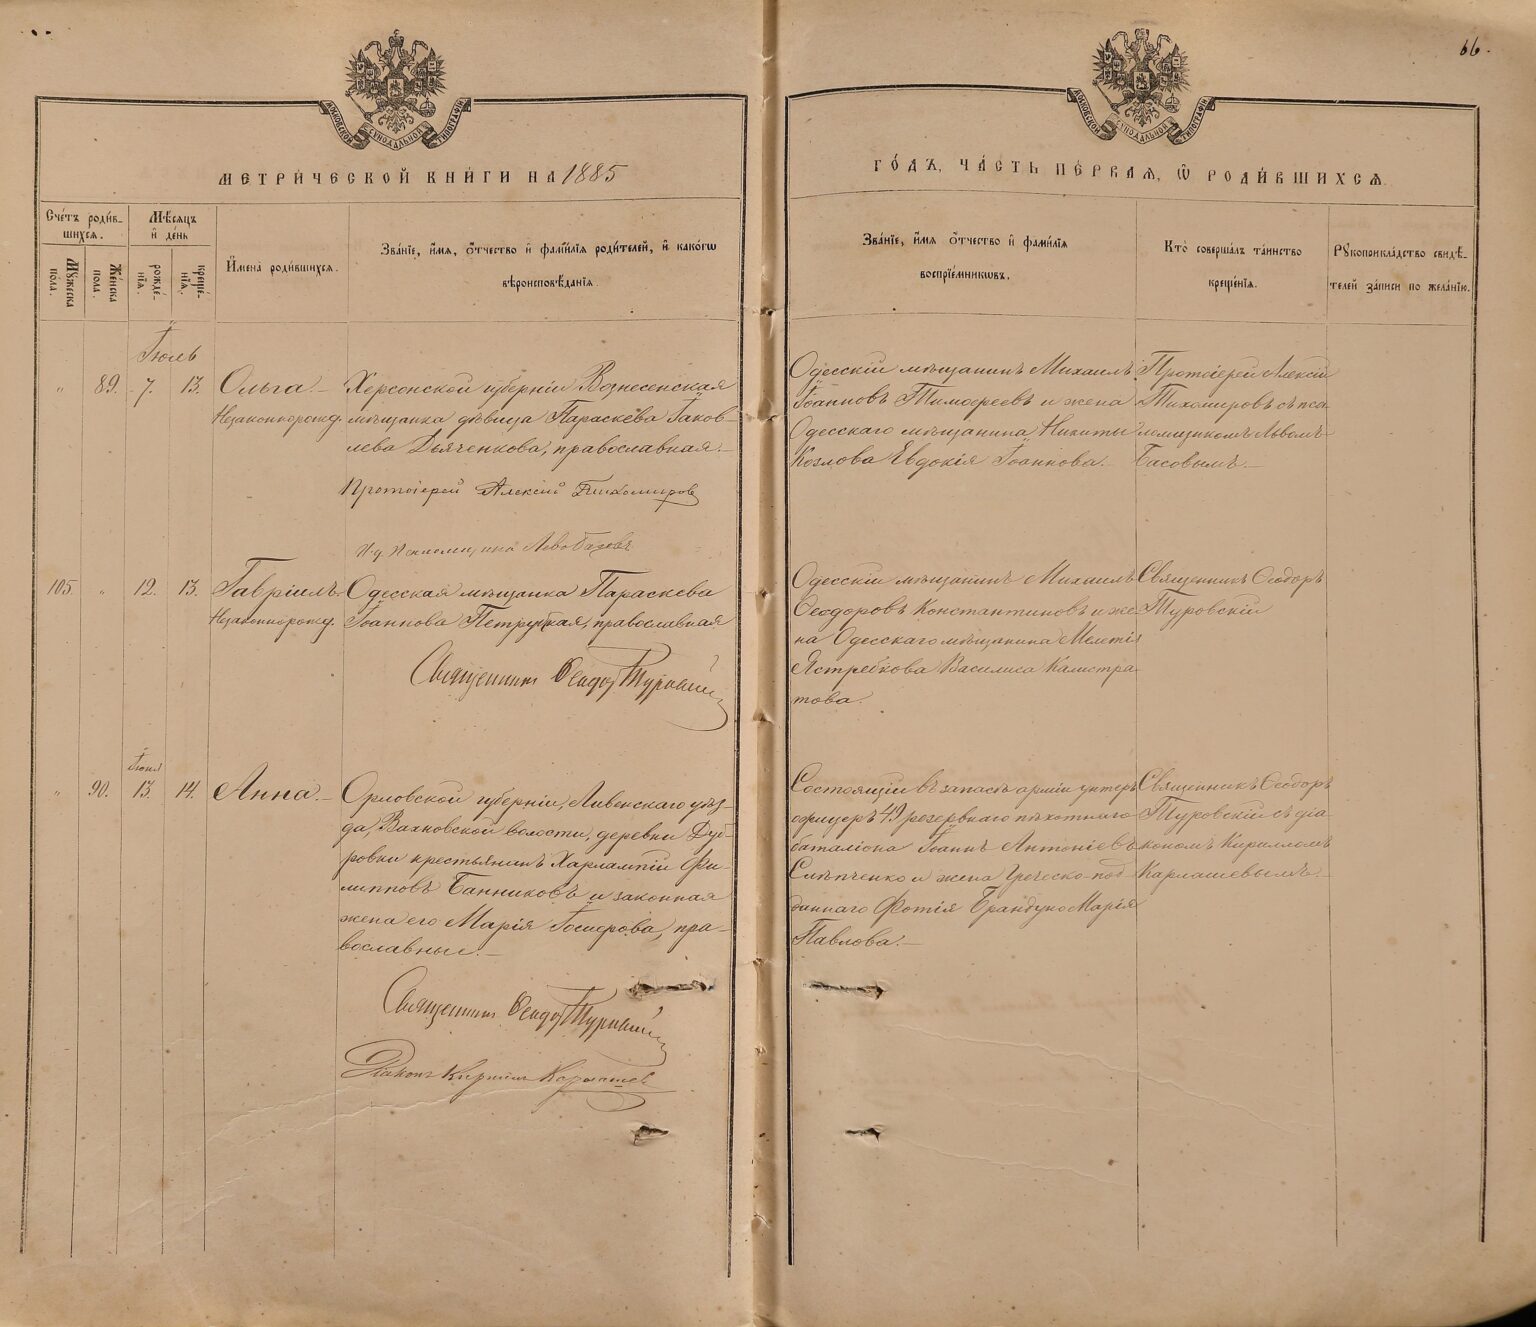 66.
МОСКОВСКОЙ СѴНОДАЛЬНОЙ ТИПОГРАФІИ
МОСКОВСКОЙ СѴНОДАЛЬНОЙ ТИПОГРАФІИ
МЕТРИ́ЧЕСКОЙ КНИ́ГИ НА 1885
ГО́ДЪ, ЧА́СТЬ ПЕ́РВАѦ, Ѽ РОДИ́ВШИХСѦ.
Сче́тъ роди́в-
шихсѧ.
Мꙋ́жеска по́ла.
Же́нска пола.
Мѣ́сѧцъ
и҆ де́нь
рожде́-
нїѧ.
креще́-
нїѧ.
И҆мена̀ роди́вшихсѧ.
Зва́нїе, и҆́мѧ, ѻ҆́тчество и҆ фами́лїѧ роди́телей, и҆ како́гѡ
вѣроисповѣ́данїѧ.
Зва́нїе, и҆́мѧ ѻ҆́тчество и҆ фами́лїѧ
воспрїе́мникѡвъ.
Кто̀ соверша́лъ та́инство
креще́нїѧ.
Рꙋкоприкла́дство свидѣ́-
телей за́писи по жела́нїю.
Іюль
" 89. 7. 13. Ольга.—
Незаконнорожд.
Херсонской губерніи Вознесенская
мѣщанка дѣвица Параскева Іаков-
лева Дьяченкова, православная.—
Протоіерей Алексій Тихомиров
И. д. Псаломщика Левъ Басовъ
Одесскій мѣщанинъ Михаилъ
Іоанновъ Тимофеевъ и жена
Одесскаго мѣщанина Никиты
Козлова Евдокія Іоаннова.—
Протоіерей Алексій
Тихомировъ съ пса-
ломщикомъ Львомъ
Басовымъ.—
105. " 12. 13. Гавріилъ
Незаконнорожд.
Одесская мѣщанка Параскева
Іоаннова Петруцкая, православная
Священник Феодор Туровский
Одесскій мѣщанинъ Михаилъ
Феодоровъ Константиновъ и же-
на Одесскаго мѣщанина Мелетія
Ястребкова Василиса Калистра-
това.
Священникъ Феодоръ
Туровскій
Іюля
" 90. 13. 14. Анна.—
Орловской губерніи, Ливенскаго уѣз-
да, Вахновской волости, деревни Дуб-
ровки крестьянинъ Харлампій Фи-
липповъ Банниковъ и законная
жена его Марія Іосифова, пра-
вославные.—
Священник Феодор Туровский
Діаконъ Кирилл Карташев
Состоящій въ запасѣ арміи унтеръ
офицеръ 49 резервнаго пѣхотнаго
баталіона Іоаннъ Антоніевъ
Слѣпченко и жена Греческо-под-
даннаго Фотія Брандуко Марія
Павлова.—
Священникъ Феодоръ
Туровскій съ діа-
кономъ Кирилломъ
Карташевымъ.—